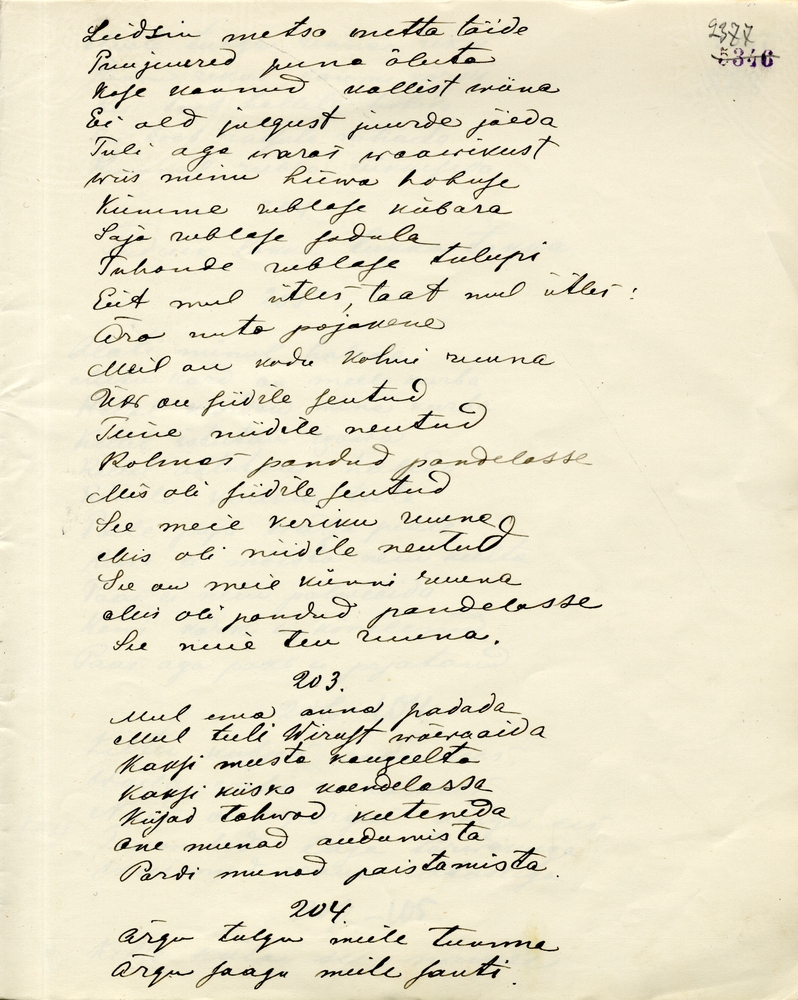 2377
346
Leidsin metsa metta täide
Puujuured puna õluta
Kase kannud kallist wiina
Ei old julgust juurde jäeda
Tuli aga waras waawikust
wiis minu hüwa hobuse
Kümme rublase kübara
Saja rublase sadula
Tuhande rublase tulupi
Eit mul ütles, taat mul ütles:
Ära nuta pojakene
Meil on kodu kolmi ruuna
Üks on siidile seutud
Teine niidile neutud
Kolmas pandud pandelasse
Mis oli siidile seutud
See meie keriku ruuna
Mis oli niidile neutud
See on meie künni ruuna
Mis oli pandud pandelasse
See meie teu ruuna.
203.
Mul ema anna padada
Mul tuli Wirust wäeraaida
Kaksi meesta kaugeelta
Kaksi kiiska kaendelassa
Kiisad tahwad keeteneda
ane munad audumista
Pardi munad paistamista.
204.
Ärgu tulgu meile tuuma
Ärgu saagu meile santi.